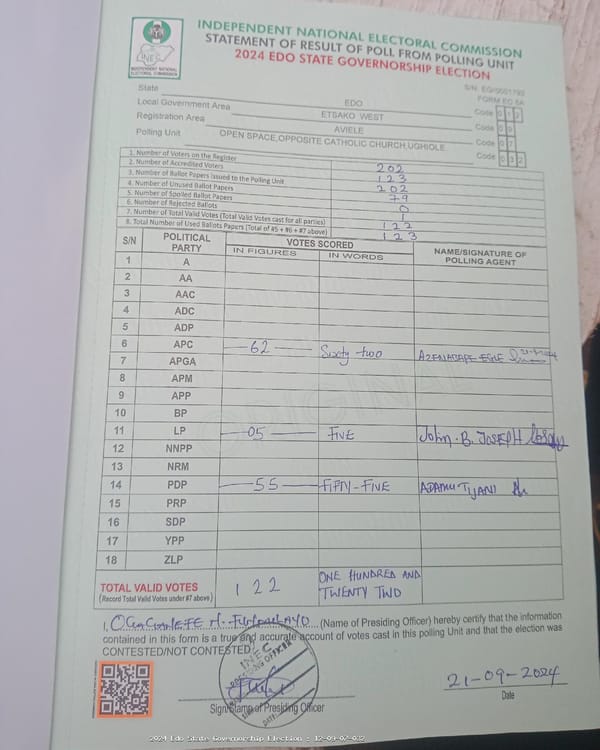 INDEPENDENT NATIONAL ELECTORAL COMMISSION
STATEMENT OF RESULT OF POLL FROM POLLING UNIT
2024 EDO STATE GOVERNORSHIP ELECTION
INEC
INDEPENDENT NATIONAL
ELECTORAL COMMISSION
FORM EC 8A
State EDO Code 0 1 2
Local Government Area ETSAKO WEST Code
Registration Area AVIELE Code 0 7
Polling Unit OPEN SPACE,OPPOSITE CATHOLIC CHURCH,UGHIOLE Code 0 3 2
1. Number of Voters on the Register 202
2. Number of Accredited Voters 123
3. Number of Ballot Papers Issued to the Polling Unit 202
4. Number of Unused Ballot Papers 79
5. Number of Spoiled Ballot Papers 0
6. Number of Rejected Ballots 1
7. Number of Total Valid Votes (Total Valid Votes cast for all parties) 122
8. Total Number of Used Ballots Papers (Total of #5 + #6 + #7 above) 123
S/N POLITICAL PARTY VOTES SCORED NAME/SIGNATURE OF POLLING AGENT
IN FIGURES IN WORDS
1 A
2 AA
3 AAC
4 ADC
5 ADP
6 APC 62 Sixty two
7 APGA
8 APM
9 APP
10 BP
11 LP 05 FIVE John. B. JOSEPH
12 NNPP
13 NRM
14 PDP 55 FIFTY-FIVE ADAMU TIJANI
15 PRP
16 SDP
17 YPP
18 ZLP
TOTAL VALID VOTES 122 ONE HUNDRED AND TWENTY TWO
(Record Total Valid Votes under #7 above)
I, (Name of Presiding Officer) hereby certify that the information
contained in this form is a true and accurate account of votes cast in this polling Unit and that the election was
CONTESTED/NOT CONTESTED.
INEC
PRESIDING OFFICER
Sign/Stamp of Presiding Officer
21-09-2024
Date
2024 Edo State Governorship Election : 12-09-07-032